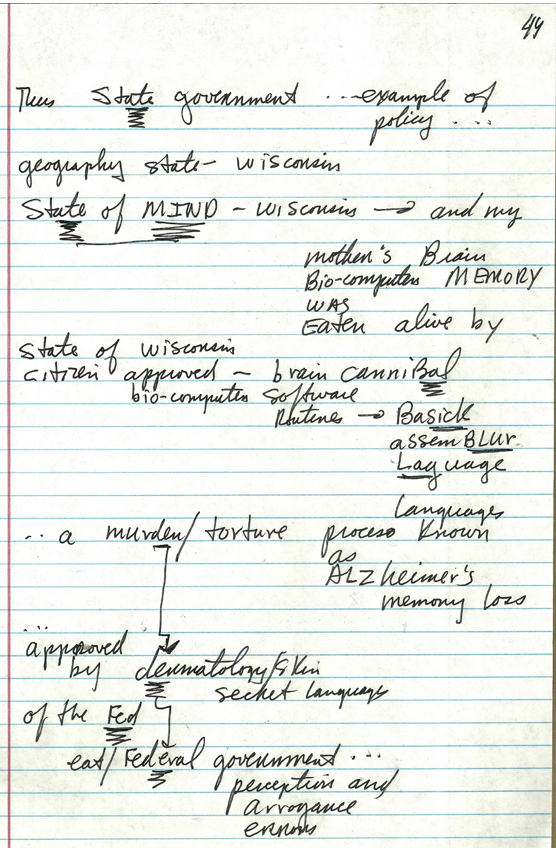 44
Thus State government ... example of
policy ...
geography state - wisconsin
State of MIND - wisconsin → and my
mother's Brain
Bio-computer MEMORY
WAS
Eaten alive by
State of wisconsin
citizen approved - brain canniBal
bio-computer software
Routines → Basick
assemBLUr
Laguage
Languages
.. a murder/torture process known
as
ALZheimer's
memory loss
...
approved
by dermatology/skin
secret languages
of the Fed
eat/Federal government ...
perception and
arrogance
errors